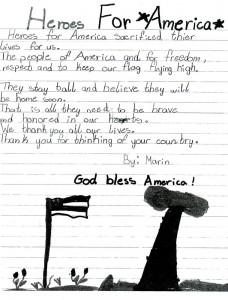 Heroes For *America*
Heroes for America sacrificed thier
lives for us.
The people of America and for freedom,
respect and to keep our flag flying high.
They stay ball and believe they will
be home soon.
That is all they need to be brave
and honored in our hearts.
We thank you all our lives.
Thank you for thinking of your country.
By: Marin
God bless America!